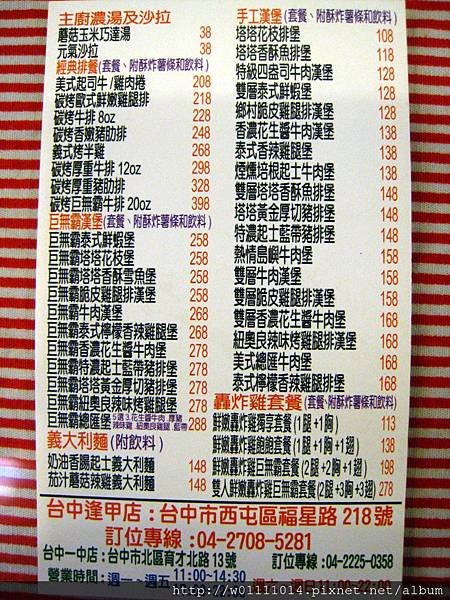 主廚濃湯及沙拉
蘑菇玉米巧達湯 38
元氣沙拉 38
經典排餐(套餐、附酥炸薯條和飲料)
美式起司牛/雞肉捲 208
碳烤歐式鮮嫩雞腿排 218
碳烤牛排 8oz 228
碳烤香嫩豬肋排 248
義式烤半雞 268
碳烤厚重牛排 12oz 298
碳烤厚重豬肋排 328
碳烤巨無霸牛排 20oz 398
巨無霸漢堡(套餐、附酥炸薯條和飲料)
巨無霸泰式鮮蝦堡 258
巨無霸塔塔花枝堡 258
巨無霸塔塔香酥雪魚堡 258
巨無霸脆皮雞腿排漢堡 258
巨無霸牛肉漢堡 268
巨無霸泰式檸檬香辣雞腿堡 268
巨無霸香濃花生醬牛肉堡 278
巨無霸特濃起士藍帶豬排堡 278
巨無霸塔塔黃金厚切豬排堡 278
巨無霸紐奧良辣味烤雞腿堡 288
巨無霸總匯堡 288
義大利麵(附飲料)
奶油香腸起士義大利麵 148
茄汁蘑菇辣雞義大利麵 148
手工漢堡(套餐、附酥炸薯條和飲料)
塔塔花枝排堡 108
塔塔香酥魚排堡 118
特級四盎司牛肉漢堡 128
雙層泰式鮮蝦堡 128
鄉村脆皮雞腿排漢堡 128
香濃花生醬牛肉漢堡 138
泰式香辣雞腿堡 138
煙燻培根起士牛肉堡 138
雙層塔塔香酥魚排堡 148
塔塔黃金厚切豬排堡 148
特濃起士藍帶豬排堡 148
熱情島嶼牛肉堡 158
雙層牛肉漢堡 158
雙層脆皮雞腿排漢堡 158
雙層香濃花生醬牛肉堡 168
紐奧良辣味烤雞腿排漢堡 168
美式總匯牛肉堡 168
泰式檸檬香辣雞腿排堡 168
轟炸雞套餐(套餐、附酥炸薯條和飲料)
鮮嫩轟炸雞獨享套餐(1腿+1胸) 113
鮮嫩轟炸雞飽飽套餐(1腿+1胸+1翅) 138
鮮嫩轟炸雞巨無霸套餐(2腿+2胸+1翅) 198
雙人鮮嫩轟炸雞巨無霸套餐(2腿+3胸+3翅) 278
台中逢甲店：台中市西屯區福星路 218號
訂位專線：04-2708-5281
台中一中店：台中市北區育才北路 13號 訂位專線：04-2225-0358
營業時間：週一~週五 11:00~14:30 週六~週日11:00~22:00
http://wo1111014.pixnet.net/album